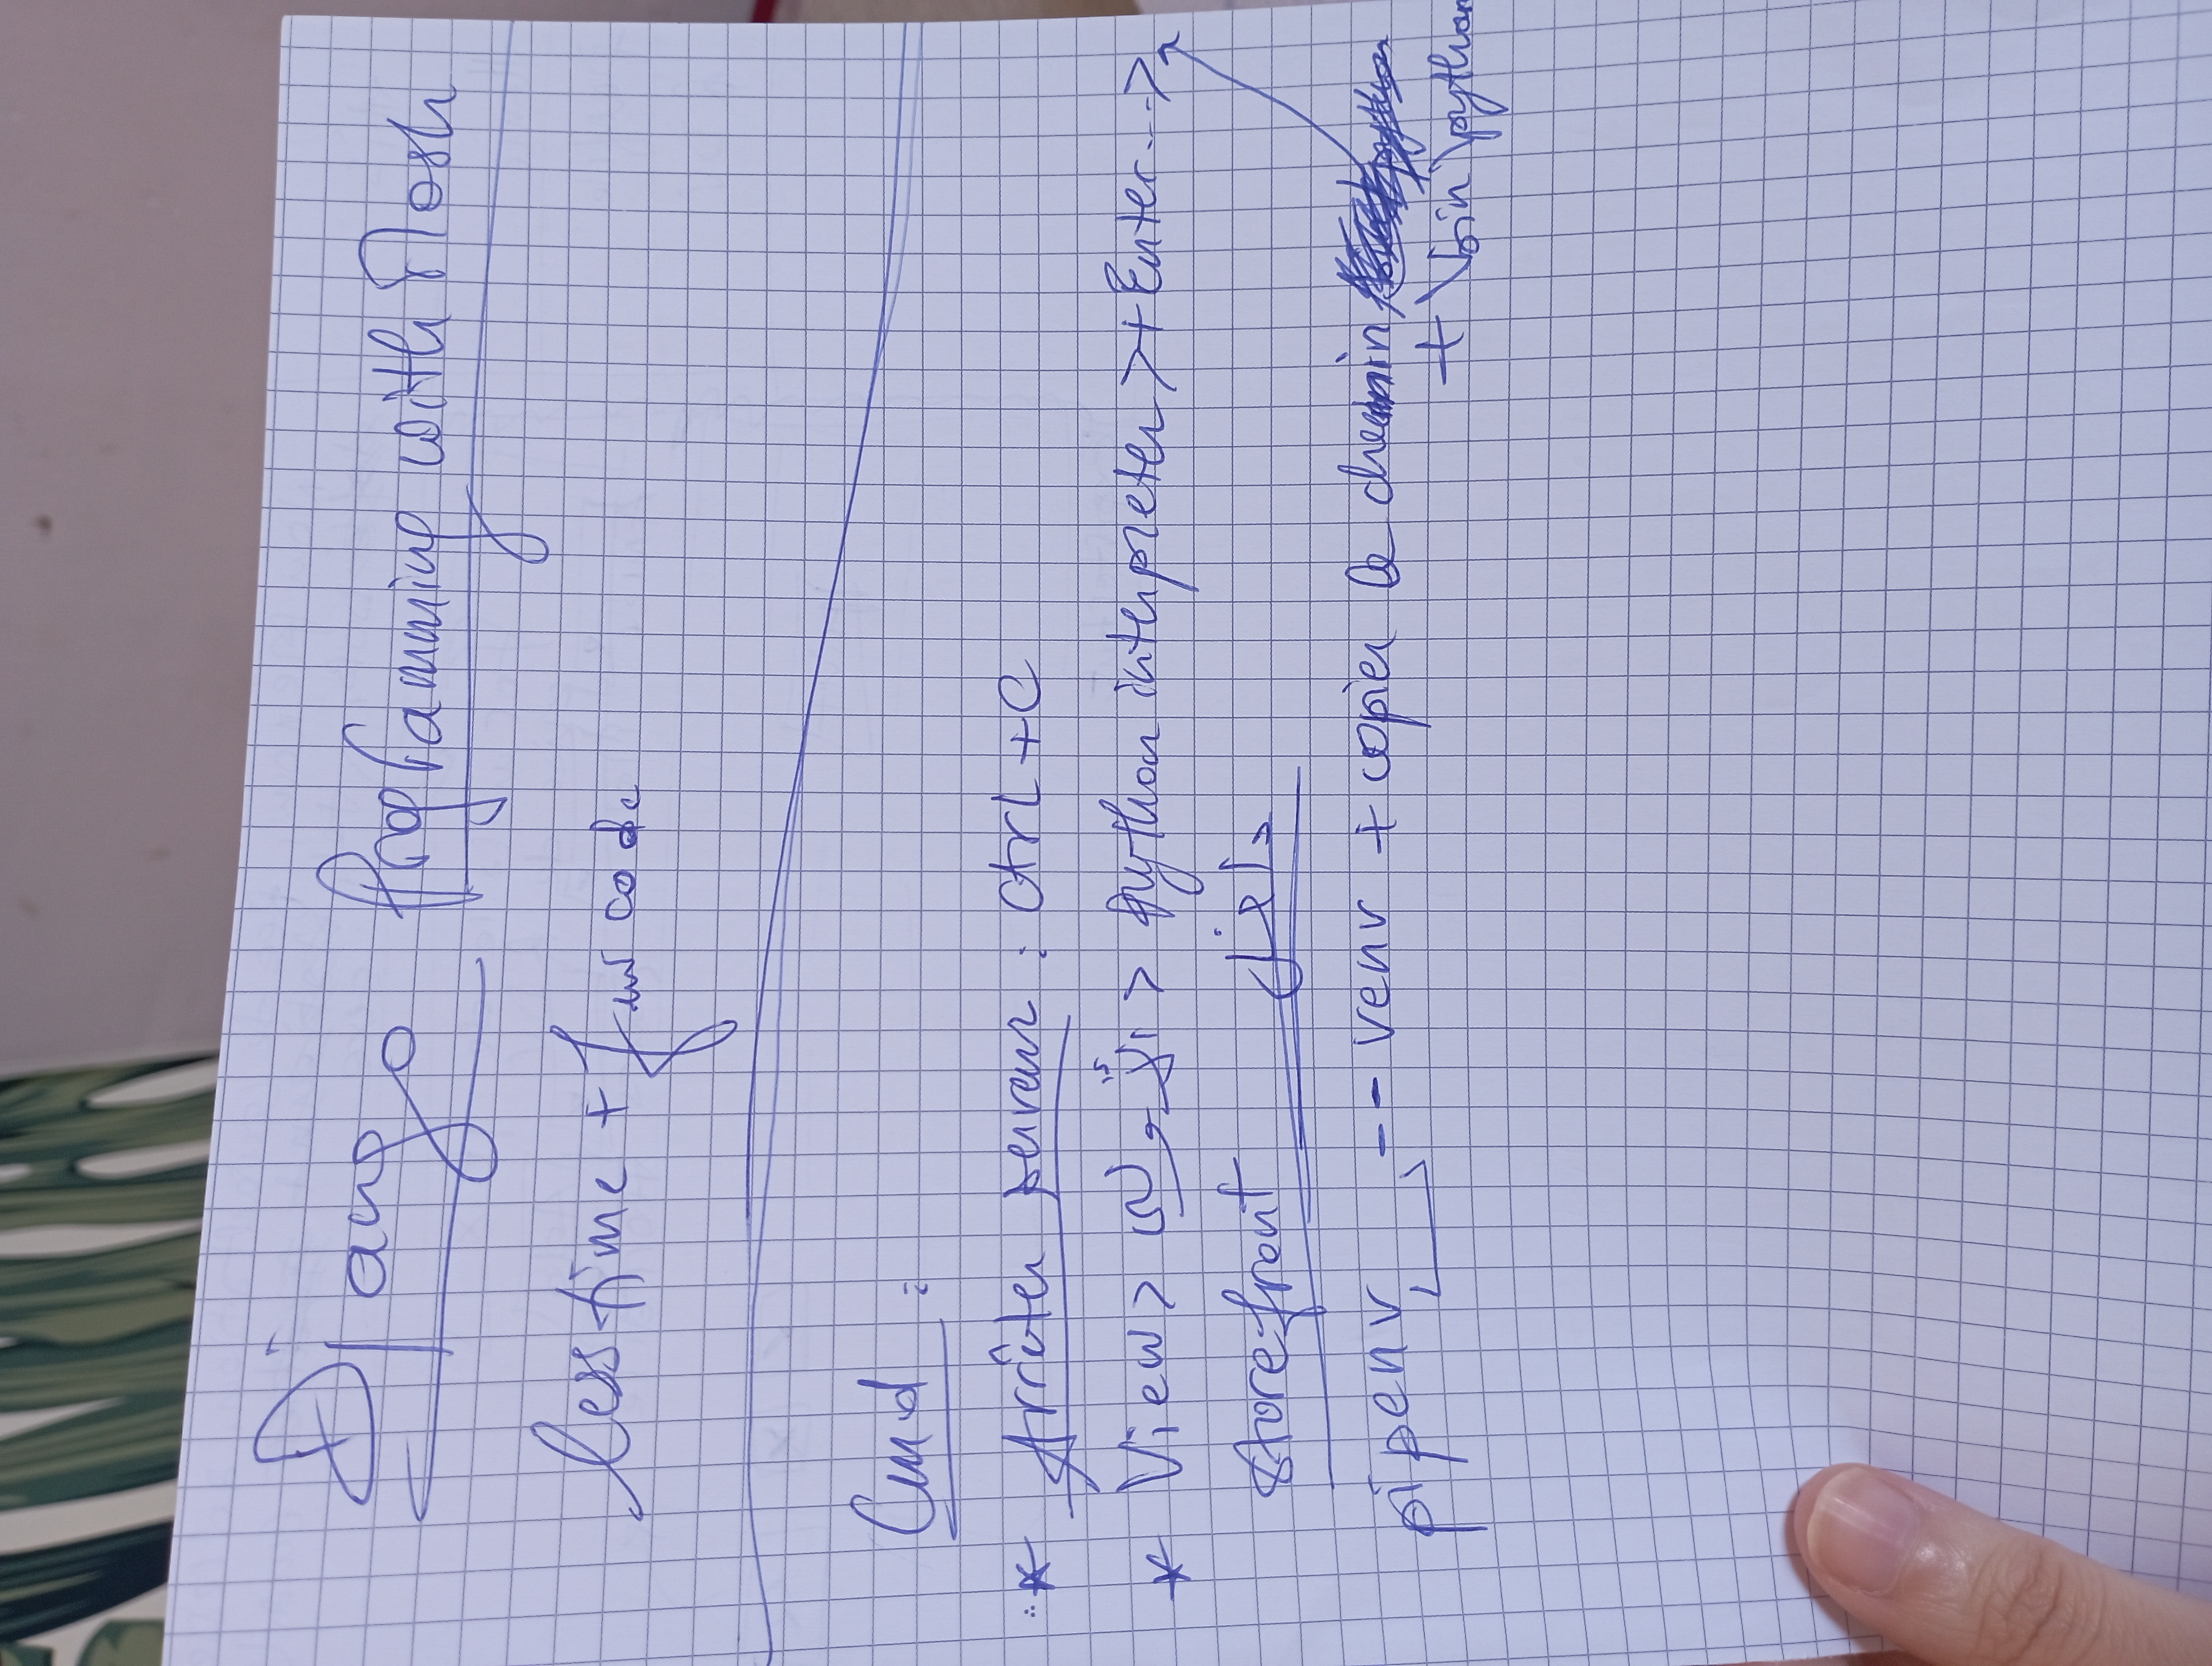 Django Programming with Mosh
less time + few code
Cmd :
* Arrêter serveur : Ctrl + C
* View > > Python interpreter > + Enter --->
storefront
pipenv --venv + copier le chemin
+ \bin\python